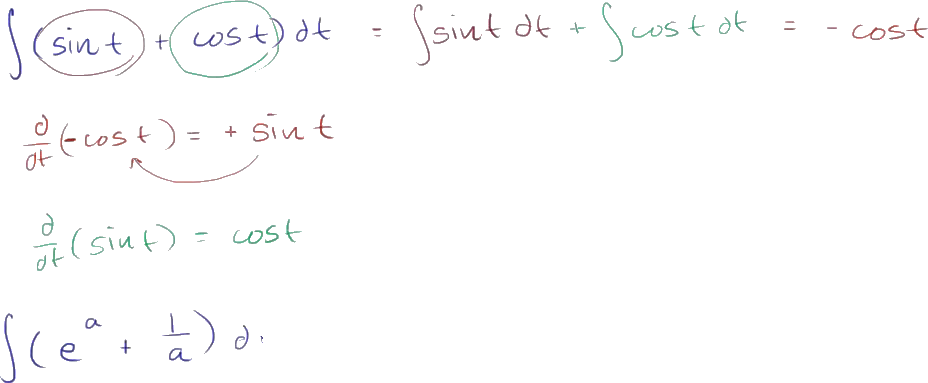 ∫(sin t + cos t) dt = ∫sin t dt + ∫cos t dt = - cos t
d/dt (-cos t) = + sin t
d/dt (sin t) = cos t
∫(e^a + 1/a) d